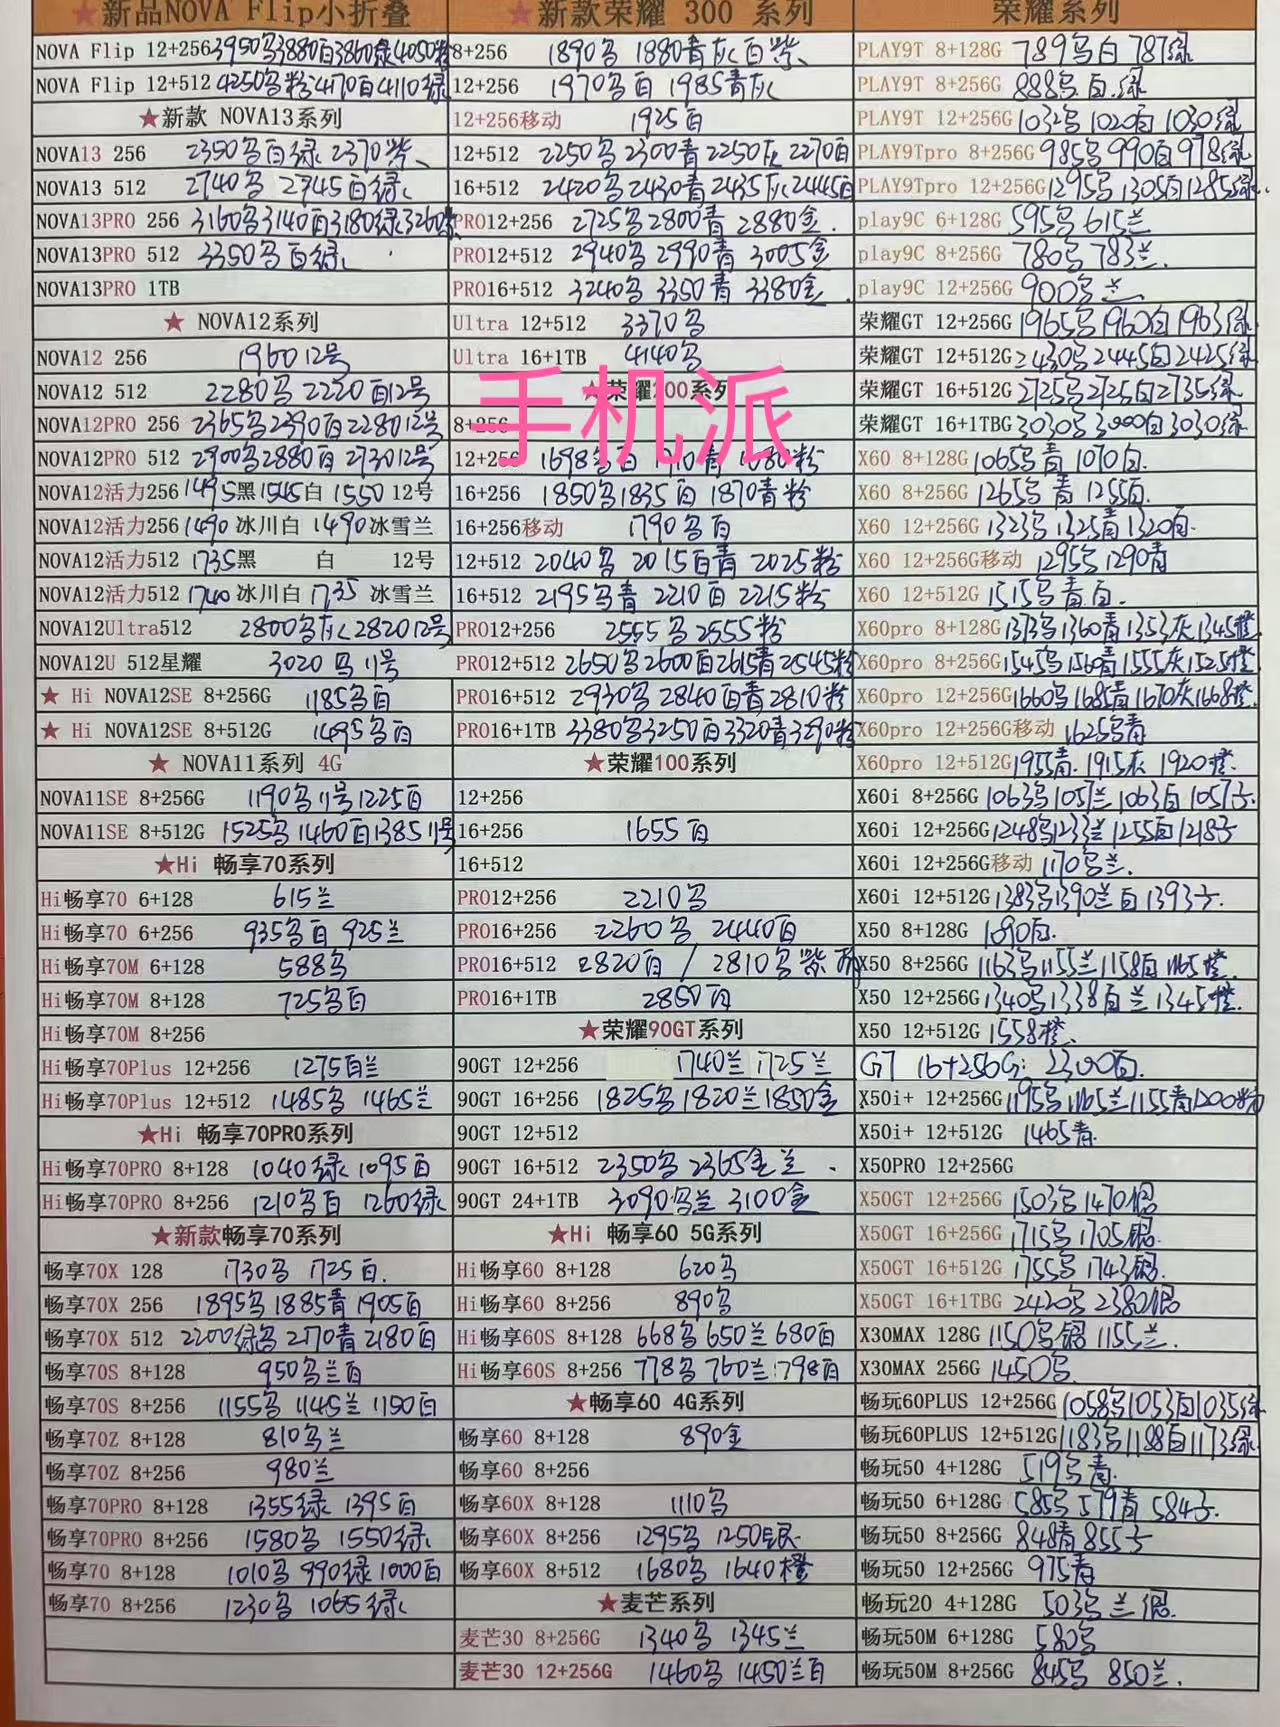 ★新品NOVA Flip小折叠
NOVA Flip 12+256 3950乌3880白3860绿4050粉
NOVA Flip 12+512 4250乌粉4170白4110绿
★新款 NOVA13系列
NOVA13 256 2350乌白绿 2370紫
NOVA13 512 2740乌 2745白绿
NOVA13PRO 256 3160乌3140白3180绿3260紫
NOVA13PRO 512 3350乌白绿
NOVA13PRO 1TB
★ NOVA12系列
NOVA12 256 1960 12号
NOVA12 512 2280乌 2220白12号
NOVA12PRO 256 2365乌2390白2280 12号
NOVA12PRO 512 2900乌2880白2730 12号
NOVA12活力256 1495黑1545白 1550 12号
NOVA12活力256 1490冰川白 1490冰雪兰
NOVA12活力512 1735黑 白 12号
NOVA12活力512 1740冰川白 1735 冰雪兰
NOVA12Ultra512 2800乌灰 2820 12号
NOVA12U 512星耀 3020乌 11号
★ Hi NOVA12SE 8+256G 1185乌白
★ Hi NOVA12SE 8+512G 1495乌白
★ NOVA11系列 4G
NOVA11SE 8+256G 1190乌11号1225白
NOVA11SE 8+512G 1525乌1460白1385 11号
★Hi 畅享70系列
Hi畅享70 6+128 615兰
Hi畅享70 6+256 935乌白 925兰
Hi畅享70M 6+128 588乌
Hi畅享70M 8+128 725乌白
Hi畅享70M 8+256
Hi畅享70Plus 12+256 1275白兰
Hi畅享70Plus 12+512 1485乌 1465兰
★Hi 畅享70PRO系列
Hi畅享70PRO 8+128 1040绿 1095白
Hi畅享70PRO 8+256 1210乌白 1260绿
★新款畅享70系列
畅享70X 128 1730乌 1725白
畅享70X 256 1895乌1885青1905白
畅享70X 512 2200绿乌 2170青2180白
畅享70S 8+128 950乌兰白
畅享70S 8+256 1155乌 1145兰 1150白
畅享70Z 8+128 810乌兰
畅享70Z 8+256 980兰
畅享70PRO 8+128 1355绿 1395白
畅享70PRO 8+256 1580乌 1550绿
畅享70 8+128 1010乌 990绿 1000白
畅享70 8+256 1230乌 1065绿
★新款荣耀 300 系列
8+256 1890乌 1880青灰白紫
12+256 1970乌白 1985青灰
12+256移动 1925白
12+512 2250乌2300青2250灰2270白
16+512 2420乌2430青2435灰2445白
PRO12+256 2725乌2800青 2880金
PRO12+512 2940乌2990青 3005金
PRO16+512 3240乌 3350青 3380金
Ultra 12+512 3370乌
Ultra 16+1TB 4140乌
手机派
★荣耀200系列
8+256
12+256 1698乌白 青 粉
16+256 1850乌1835白 1870青粉
16+256移动 1790乌白
12+512 2040乌 2015白青 2025粉
16+512 2195乌青 2210白 2215粉
PRO12+256 2555乌2555粉
PRO12+512 2650乌2600白2615青2545粉
PRO16+512 2930乌 2840白青2810粉
PRO16+1TB 3380乌3250白3320青3290粉
★荣耀100系列
12+256
16+256 1655白
16+512
PRO12+256 2210乌
PRO16+256 2260乌 2440白
PRO16+512 2820白 / 2810乌紫
PRO16+1TB 2850白
★荣耀90GT系列
90GT 12+256 1740兰 1725兰
90GT 16+256 1825乌1820兰1850金
90GT 12+512
90GT 16+512 2350乌2365金兰
90GT 24+1TB 3090乌兰 3100金
★Hi 畅享60 5G系列
Hi畅享60 8+128 620乌
Hi畅享60 8+256 890乌
Hi畅享60S 8+128 668乌 650兰 680白
Hi畅享60S 8+256 778乌 760兰 798白
★畅享60 4G系列
畅享60 8+128 890金
畅享60 8+256
畅享60X 8+128 1110乌
畅享60X 8+256 1295乌 1250银
畅享60X 8+512 1680乌 1640橙
★麦芒系列
麦芒30 8+256G 1340乌 1345兰
麦芒30 12+256G 1460乌 1450兰白
荣耀系列
PLAY9T 8+128G 789乌白 787绿
PLAY9T 8+256G 888乌白绿
PLAY9T 12+256G 1032乌 1020白 1030绿
PLAY9Tpro 8+256G 985乌990白978绿
PLAY9Tpro 12+256G 1295乌1305白1285绿
play9C 6+128G 595乌 615兰
play9C 8+256G 780乌 783兰
play9C 12+256G 900乌兰
荣耀GT 12+256G 1965乌1960白1963绿
荣耀GT 12+512G 2430乌2445白2425绿
荣耀GT 16+512G 2725乌2725白2735绿
荣耀GT 16+1TBG 3030乌3000白3030绿
X60 8+128G 1065乌青 1070白
X60 8+256G 1265乌青 1255白
X60 12+256G 1323乌1325青1320白
X60 12+256G移动 1295乌1290青
X60 12+512G 1515乌青白
X60pro 8+128G 1373乌1360青1353灰1345橙
X60pro 8+256G 1545乌1560青1555灰1525橙
X60pro 12+256G 1660乌1685青1670灰1668橙
X60pro 12+256G移动 1625乌青
X60pro 12+512G 1955青 1915灰 1920橙
X60i 8+256G 1063乌1057兰1063白1057子
X60i 12+256G 1248乌1233兰1255白1218子
X60i 12+256G移动 1170乌兰
X60i 12+512G 1383乌1390兰白1393子
X50 8+128G 1090白
X50 8+256G 1163乌1155兰1158白1165橙
X50 12+256G 1340乌1338白兰1345橙
X50 12+512G 1558橙
GT 16+256G: 2300白
X50i+ 12+256G 1195乌1165兰1155青1200粉
X50i+ 12+512G 1465青
X50PRO 12+256G
X50GT 12+256G 1503乌1470银
X50GT 16+256G 1715乌 1705银
X50GT 16+512G 1755乌 1743银
X50GT 16+1TBG 2420乌2380银
X30MAX 128G 1150乌银 1155兰
X30MAX 256G 1450乌
畅玩60PLUS 12+256G 1058乌1053白1035绿
畅玩60PLUS 12+512G 1183乌1188白1173绿
畅玩50 4+128G 519乌青
畅玩50 6+128G 585乌579青584子
畅玩50 8+256G 848青 855子
畅玩50 12+256G 975青
畅玩20 4+128G 503乌兰银
畅玩50M 6+128G 580乌
畅玩50M 8+256G 845乌 850兰